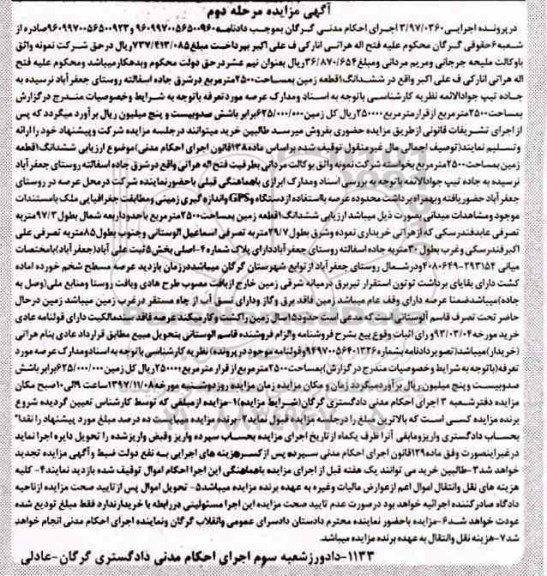 آگهی مزایده مرحله دوم
در پرونده اجرایی ۳/۹۷/۰۳۶۰ اجرای احکام مدنی گرگان بموجب دادنامه ۹۶۰۹۹۷۰۰۵۶۵۰۰۹۶۰ و ۹۶۰۹۹۷۰۰۵۶۵۰۰۹۲۳ صادره از
شعبه ۶ حقوقی گرگان محکوم علیه فتح اله هراتی انارکی ف علی اکبر بپرداخت مبلغ ۷۳۷/۴۱۳/۰۸۵ ریال در حق شرکت نمونه وثاق
باوکالت ملیحه جرجانی و مریم مردانی و مبلغ ۳۶/۸۷۰/۶۵۴ ریال بعنوان نیم عشر در حق دولت محکوم و بدهکار میباشد و محکوم علیه فتح
اله هراتی انارکی ف علی اکبر واقع در ششدانگ ۱ قطعه زمین بمساحت ۲۵۰۰ مترمربع در شرق جاده اسفالته روستای جعفر آباد نرسیده به
جاده تیپ جوادالائمه نظریه کارشناسی باتوجه به اسناد و مدارک عرصه مورد تعرفه باتوجه به شرایط و خصوصیات مندرج در گزارش
بمساحت ۲۵۰۰ مترمربع از قرار مترمربع ۲۵۰۰۰۰ ریال کل زمین ۶۲۵/۰۰۰/۰۰۰ برابر باشش صدوبیست و پنج میلیون ریال برآورد میگردد که پس
از اجرای تشریفات قانونی از طریق مزایده حضوری بفروش میرسد طالبین خرید میتوانند در جلسه مزایده شرکت و پیشنهاد خود را ارائه
و تسلیم نمایند (توصیف اجمالی مال غیر منقول توقیف شده براساس ماده ۱۳۸ قانون اجرای احکام مدنی) موضوع ارزیابی ششدانگ ۱ قطعه
زمین بمساحت ۲۵۰۰ مترمربع بخواسته شرکت نمونه وثاق بوکالت مردانی بطرفیت فتح اله هراتی واقع در شرق جاده اسفالته روستای جعفر آباد
نرسیده به جاده تیپ جوادالائمه باتوجه به بررسی اسناد و مدارک ابرازی باهماهنگی قبلی باحضور نماینده شرکت در محل عرصه در روستای
جعفر آباد حضور یافته و بهمراه برداشت محدوده عرصه بااستفاده از دستگاه GPS و اندازه گیری زمینی و مطابقت جغرافیایی ملک با مستندات
موجود و مشاهدات میدانی بصورت ذیل میباشد ارزیابی ششدانگ ۱ قطعه زمین بمساحت ۲۵۰۰ مترمربع باحدود اربعه شمال بطول ۹۷/۳ متر به
تصرفی عابد فندرسکی که از هراتی خریداری نموده و شرق بطول ۲۹/۷ متر به تصرفی اسماعیل الوستانی و جنوب بطول ۸۵ متر به تصرفی علی
اکبر فندرسکی و غرب بطول ۳۰ متر به جاده اسفالته روستای جعفر آباد دارای پلاک شماره ۴-اصلی بخش ۵ ثبت علی آباد (جعفر آباد) بامختصات
میانی ۲۹۳۱۵۴-۴۰۸۰۶۴۹ و در شمال روستای جعفر آباد از توابع شهرستان گرگان میباشد در زمان بازدید عرصه مسطح شخم خورده آماده
کشت دارای بقایای برداشت توتون استقرار تیر برق در میانه شرقی زمین خارج از بافت مصوب طرح هادی و بافت روستا و منابع ملی (وصل به
جاده) میباشد ضمنا عرصه دارای وقف عام میباشد زمین فاقد برق و گاز و دارای نسق آب از چاه مستقر در غرب زمین میباشد زمین در حال
حاضر تحت تصرف قاسم الوستانی است که مدعی است حدود ۱۵ سال زمین را کشت و کار میکند عرصه فاقد سند مالکیت دارای قولنامه عادی
خرید مورخه ۹۳/۰۳/۰۴ و رای اثبات وقوع بیع بشرح فروشنامه و الزام فروشنده قاسم الوستانی بتحویل مبیع مطابق قرارداد عادی بنام هراتی
(خریدار) میباشد (تصویر دادنامه بشماره ۹۴۹۷۰۰۵۶۴۰۱۳۲۶ و قولنامه موجود در پرونده) نظریه کارشناسی باتوجه به اسناد و مدارک عرصه مورد
تعرفه (باتوجه به شرایط و خصوصیات مندرج در گزارش) بمساحت ۲۵۰۰ مترمربع از قرار مترمربع ۲۵۰۰۰۰ ریال کل زمین ۶۲۵/۰۰۰/۰۰۰ برابر باشش
صدوبیست و پنج میلیون ریال برآورد میگردد زمان و مکان مزایده زمان مزایده روز دوشنبه مورخه ۱۳۹۷/۱۱/۰۸ ساعت ۹ الی ۱۰ صبح مکان
مزایده دفتر شعبه ۳ اجرای احکام مدنی دادگستری گرگان (شرایط مزایده) ۱-مزایده از مبلغی که توسط کارشناس تعیین گردیده شروع
برنده مزایده کسی است که بالاترین مبلغ را در جلسه مزایده قبول نماید ۲-برنده مزایده میبایست ده درصد مبلغ مورد پیشنهاد را نقدا"
بحساب دادگستری واریز و مابقی آنرا ظرف یکماه از تاریخ اجرای مزایده بحساب سپرده واریز و قبض واریز شده را تحویل دایره اجرا نماید
در غیر اینصورت وفق ماده ۱۲۹ قانون اجرای احکام مدنی سپرده پس از کسر هزینه های اجرایی به نفع دولت ضبط و آگهی مزایده تجدید
خواهد شد ۳-طالبین خرید می توانند یک هفته قبل از اجرای مزایده باهماهنگی این اجرا احکام اموال توقیف شده بازدید نمایند ۴-کلیه
هزینه های نقل و انتقال اموال اعم از عوارض مالیات و غیره به عهده برنده مزایده میباشد ۵-تحویل اموال پس از تایید صحت مزایده از ناحیه
دادگاه صادر کننده اجرائیه خواهد بود در صورت عدم تایید صحت مزایده این اجرا مسئولیتی در رابطه با خریدار ندارد فقط مبلغ تودیع شده
عودت خواهد شد ۶-مزایده باحضور نماینده محترم دادستان دادسرای عمومی و انقلاب گرگان و نماینده اجرای احکام مدنی انجام خواهد
شد ۷-هزینه نقل و انتقال به عهده برنده مزایده میباشد.
۱۱۳۳-دادورز شعبه سوم اجرای احکام مدنی دادگستری گرگان-عادلی